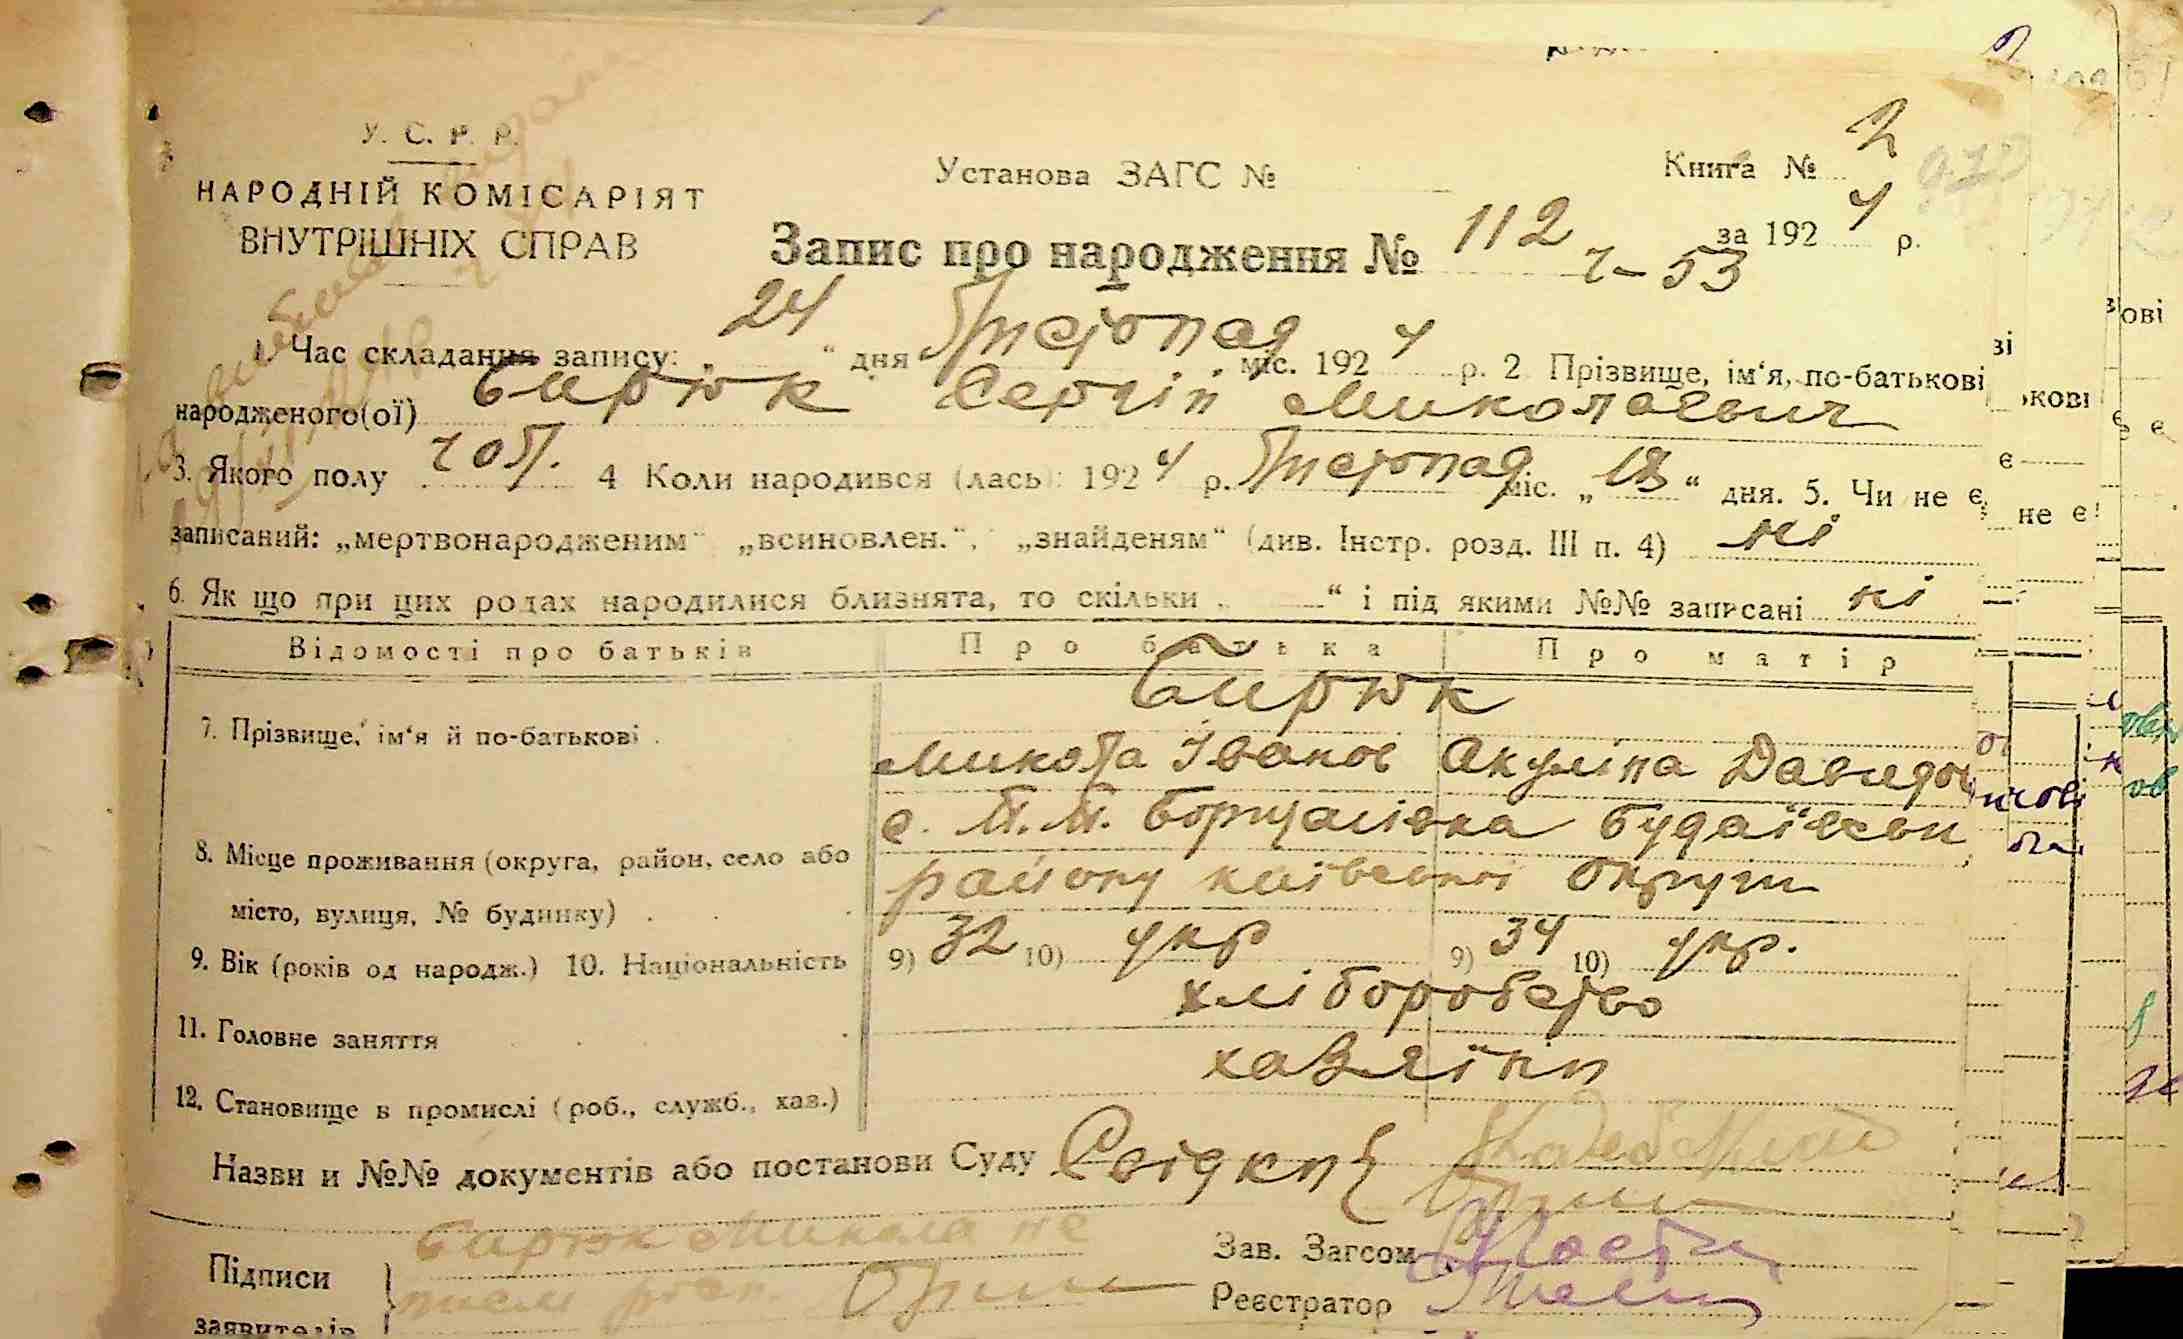 У. С. Р. Р.
НАРОДНІЙ КОМІСАРІЯТ
ВНУТРІШНІХ СПРАВ
Установа ЗАГС №
Книга № 2
Запис про народження № 112 за 1924 р.
ч–53
1. Час складання запису: „24“ дня Листопад міс. 1924 р. 2 Прізвище, ім‘я, по-батькові
народженого(ої) Бирюк Сергій Миколаєвич
3. Якого полу чол. 4 Коли народився (лась): 1924 р. Листопад міс. „18“ дня. 5. Чи не є
записаний: „мертвонародженим“ „всиновлен.“, „знайденям“ (див. Інстр. розд. III п. 4) ні
6. Як що при цих родах народилися близнята, то скільки „ “ і під якими №№ записані ні
Відомості про батьків Про батька Про матір
Бирюк
7. Прізвище, ім‘я й по-батькові . Микола Іванов Акуліна Давидов
с. М.М. Борщагівка Будаївськ
8. Місце проживання (округа, район, село або
району київської округи
місто, вулиця, № будинку) .
9. Вік (років од народж.) 10. Національність 9) 32 10) укр 9) 34 10) укр.
хліборобство
11. Головне заняття
хазяїни
12. Становище в промислі (роб., служб., хаз.)
Назви и №№ документів або постанови Суду Свідки
Бирюк Микола не
Підписи
заявителів
Зав. Загсом
Реєстратор